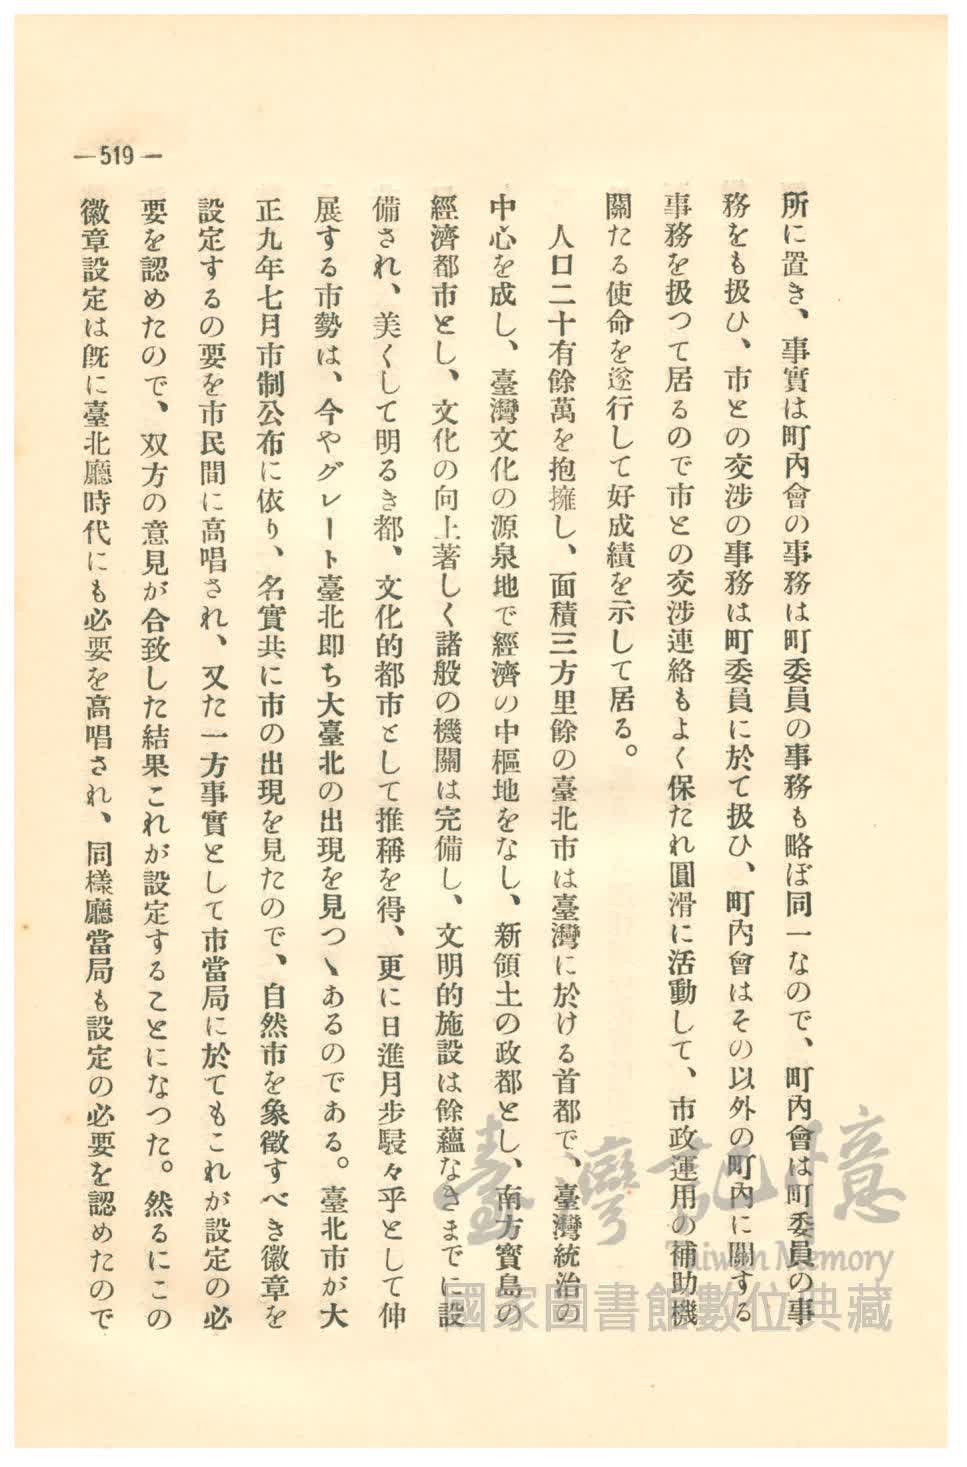 所に置き、事實は町內會の事務は町委員の事務も略ぼ同一なので、町內會は町委員の事
務をも扱ひ、市との交涉の事務は町委員に於て扱ひ、町內會はその以外の町內に關する
事務を扱つて居るので市との交涉連絡もよく保たれ圓滑に活動して、市政運用の補助機
關たる使命を遂行して好成績を示して居る。
人口二十有餘萬を抱擁し、面積三方里餘の臺北市は臺灣に於ける首都で、臺灣統治の
中心を成し、臺灣文化の源泉地で經濟の中樞地をなし、新領土の政都とし、南方寳島の
經濟都市とし、文化の向上著しく諸般の機關は完備し、文明的施設は餘蘊なきまでに設
備され、美くして明るき都、文化的都市として推稱を得、更に日進月步駸々乎として伸
展する市勢は、今やグレート臺北卽ち大臺北の出現を見つゝあるのである。臺北市が大
正九年七月市制公布に依り、名實共に市の出現を見たので、自然市を象徵すべき徽章を
設定するの要を市民間に高唱され、又た一方事實として市當局に於てもこれが設定の必
要を認めたので、双方の意見が合致した結果これが設定することになつた。然るにこの
徽章設定は旣に臺北廳時代にも必要を高唱され、同樣廳當局も設定の必要を認めたので
—519—
臺灣記憶
Taiwan Memory
國家圖書館數位典藏